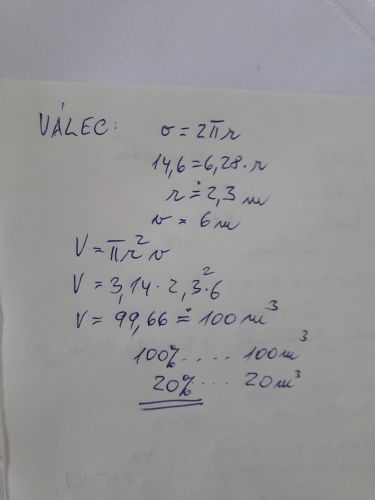 VÁLEC: o = 2πr
14,6 = 6,28 · r
r ≐ 2,3 m
v = 6 m
V = πr² v
V = 3,14 · 2,3² · 6
V = 99,66 ≐ 100 m³
100% .... 100 m³
20% ... 20 m³